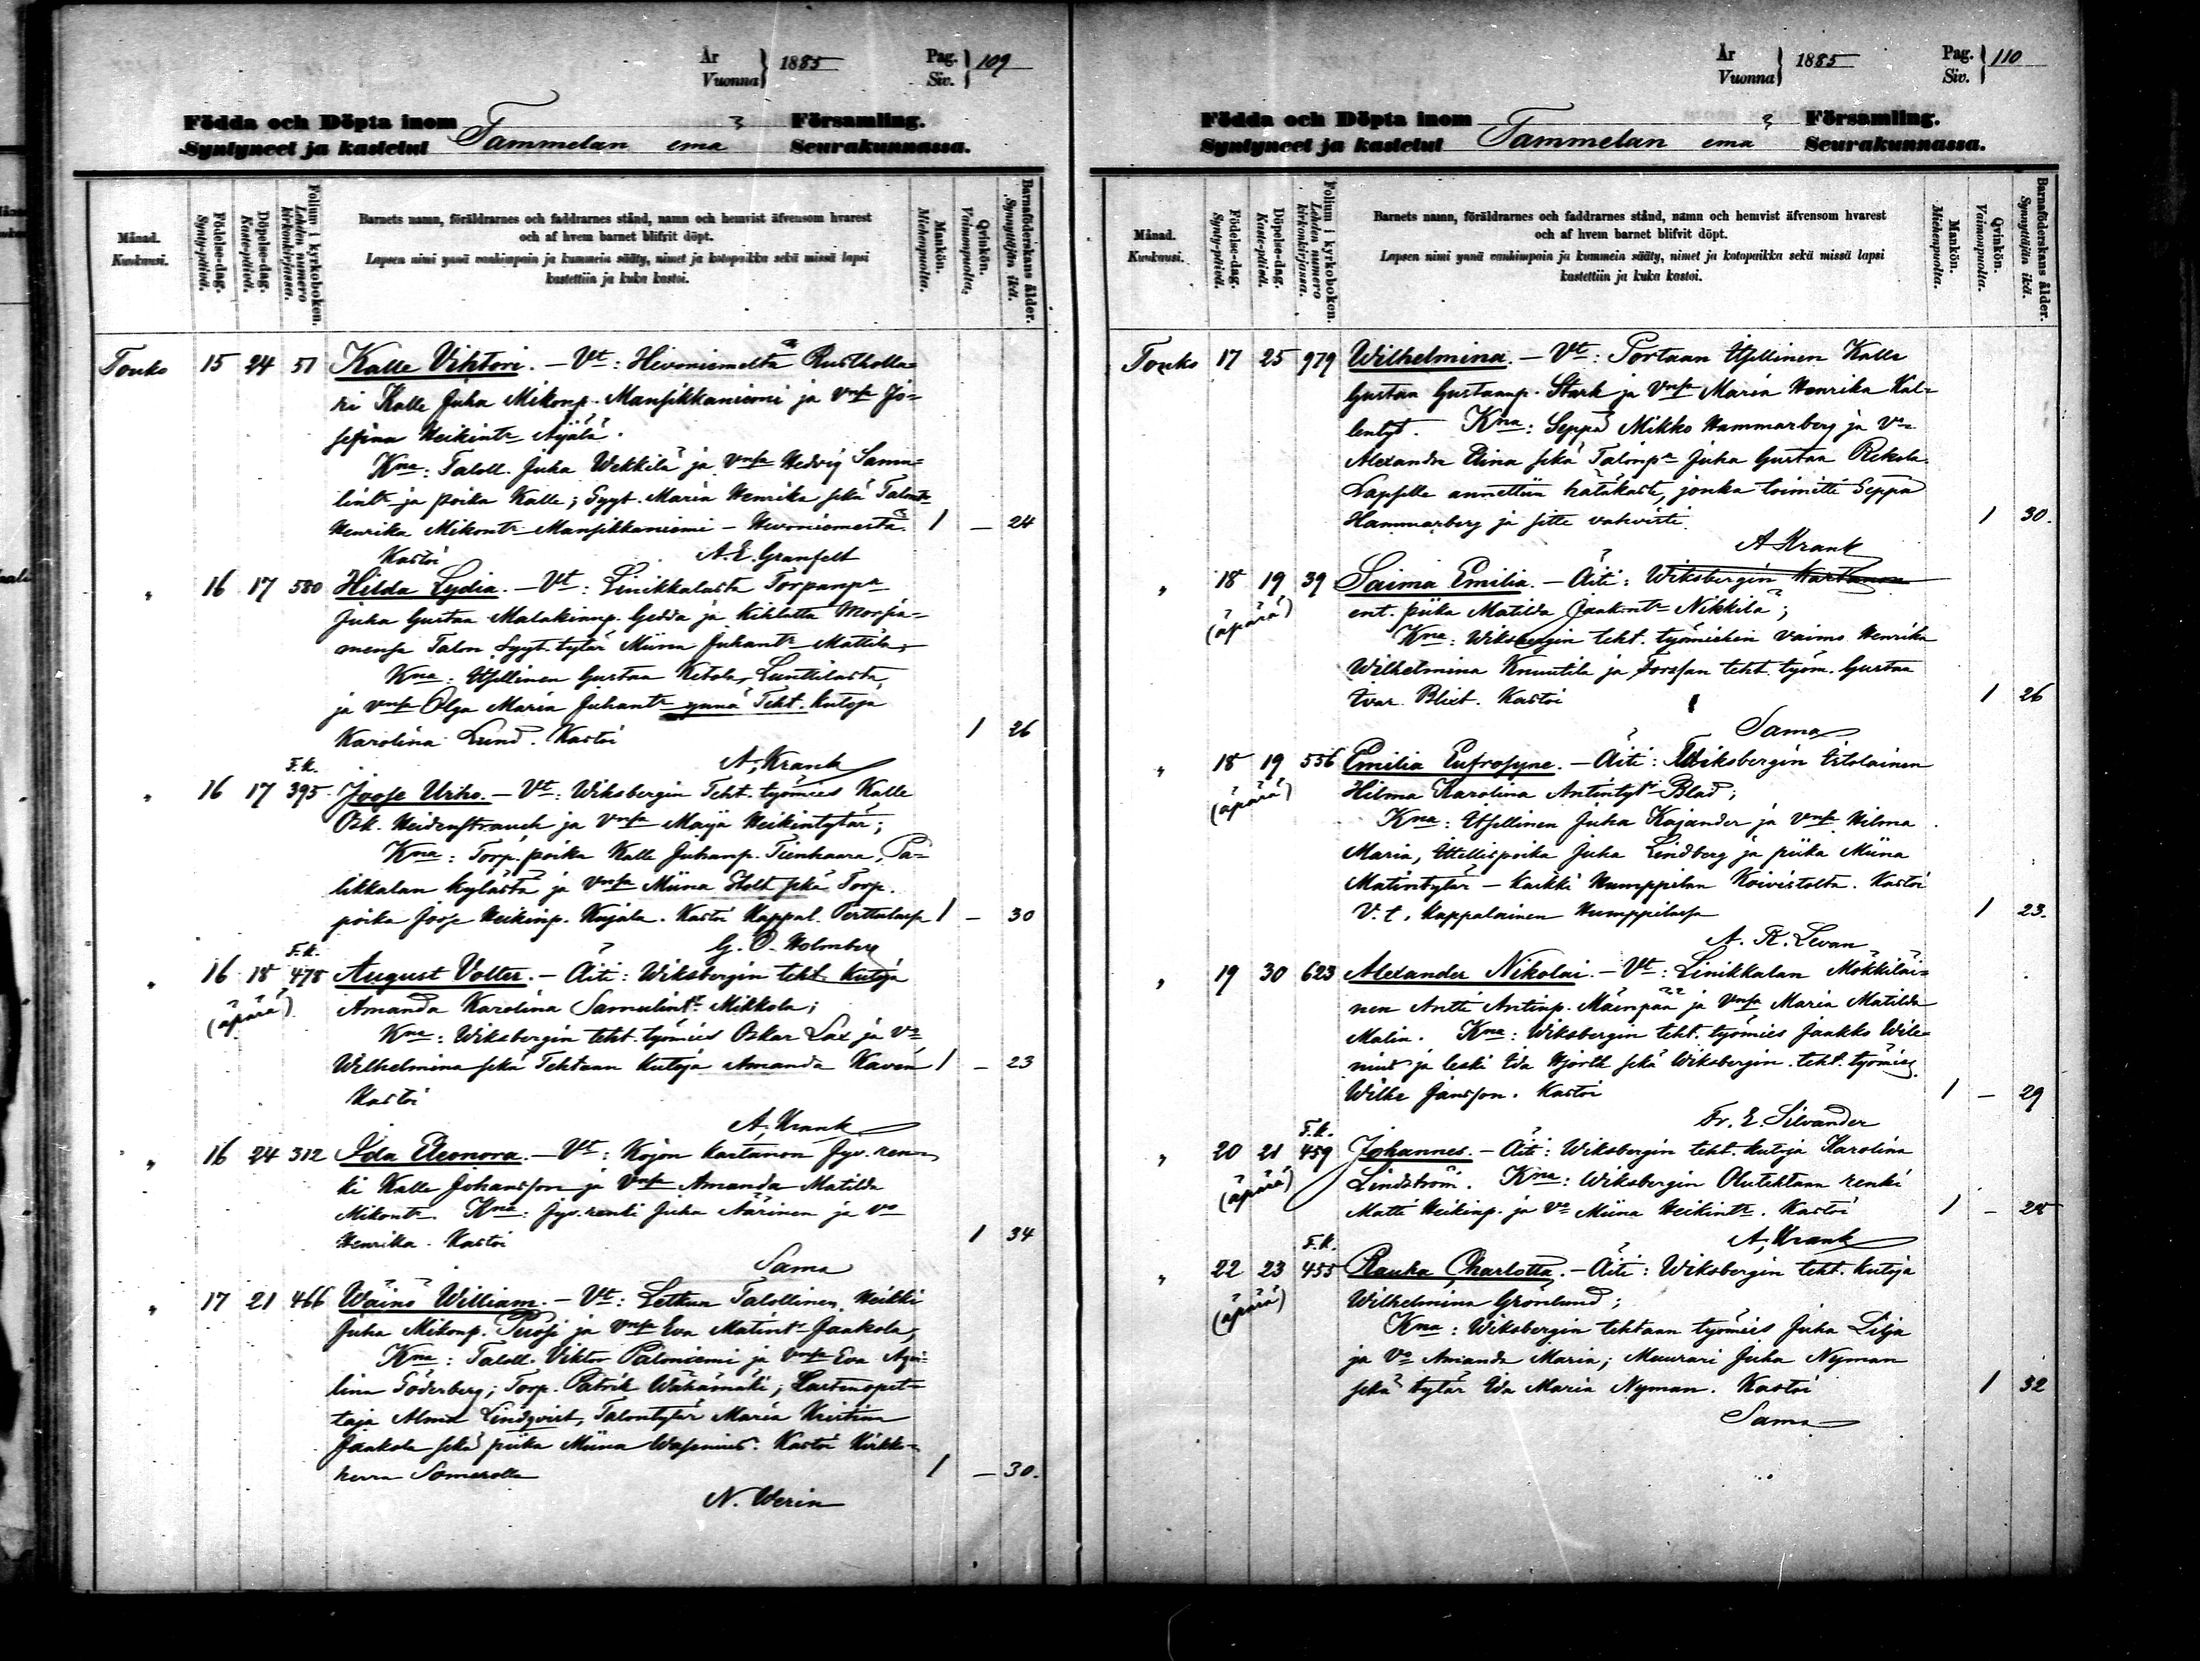 År
Vuonna } 1885 Pag.
Siv. } 109
Födda och Döpta inom Församling.
Syntyneet ja kastetut Tammelan emä Seurakunnassa.
Månad.
Kuukausi.
Födelse-dag.
Synty-päivä.
Döpelse-dag.
Kaste-päivä.
Folium i kyrkoboken.
Lehden numero kirkonkirjassa.
Barnets namn, föräldrarnes och faddrarnes stånd, namn och hemvist äfvensom hvarest
och af hvem barnet blifvit döpt.
Lapsen nimi ynnä vanhimpain ja kummein sääty, nimet ja kotopaikka sekä missä lapsi
kastettiin ja kuka kastoi.
Mankön.
Miehenpuolta.
Qvinkön.
Vaimonpuolta.
Barnaföderskans ålder.
Synnyttäjän ikä.
Touko 15 24 51 Kalle Viktori. — Vt: Hevoniemeltä Rusthollari
Kalle Juha Mikonp. Mansikkaniemi ja vmsa Jo-
sefina Heikintr Äijälä.
Kna: Taloll. Juha Wekkilä ja vmsa Hedvig Samu-
lintr ja poika Kalle; Syyt. Maria Henrika sekä Talontr
Henrika Mikontr Mansikkaniemi — Hevoniemestä. 1 — 24
Kastoi A. E. Granfelt
" 16 17 580 Hilda Lydia. — Vt: Linikkalasta Torpanpa
Juha Gustaa Malakinp. Gedda ja kihlattu Morsia-
mensa Talon Syyt. tytär Miina Juhantr Mattila;
Kna: Itsellinen Gustaa Ketola, Luntilasta
ja vmsa Olga Maria Juhantr ynnä Teht. kutoja
Karolina Lund. Kastoi 1 26
A. Krank
" 16 17 F.K. 395 Joose Urho. — Vt: Wiksbergin Teht. työmies Kalle
Osk. Heidenstrauch ja vmsa Maija Heikintytär;
Kna: Torp. poika Kalle Juhanp. Tienhaara, Pa-
likkalan kylästä ja vmsa Miina Stolt sekä Torp.
poika Joose Heikinp. Kujala. Kastoi Kappal. Perttulassa 1 — 30
G. O. Holmberg
" 16 18 F.K. 478 August Volter. — Äiti: Wiksbergin teht. kutoja
(äpärä) Amanda Karolina Samulintr Mikkola;
Kna: Wiksbergin teht. työmies Oskar Lax ja vo
Wilhelmina sekä Tehtaan kutoja Amanda Kavén 1 — 23
Kastoi
A. Krank
" 16 24 312 Ida Eleonora. — Vt: Kojon kartanon Jyv. ren-
ki Kalle Johansson ja vmsa Amanda Matilda
Mikontr. Kna: Jyv. renki Juha Äärinen ja vo
Henrika. Kastoi 1 34
Sama
" 17 21 466 Wäinö William. — Vt: Letkun Talollinen Heikki
Juha Mikonp. ja vmsa Eva Matintr Jaakola,
Kna: Taloll. Viktor Paloniemi ja vmsa Eva
lina Söderberg; Torp. Patrik Wähämäki; Lastenopet-
taja Alma Lindqvist, Talontytär Maria Kristina
Jaakola sekä piika Miina Wasenius. Kastoi Kirkko-
herra Somerolla 1 — 30.
N. Werin
År
Vuonna } 1885 Pag.
Siv. } 110
Födda och Döpta inom Församling.
Syntyneet ja kastetut Tammelan emä Seurakunnassa.
Månad.
Kuukausi.
Födelse-dag.
Synty-päivä.
Döpelse-dag.
Kaste-päivä.
Folium i kyrkoboken.
Lehden numero kirkonkirjassa.
Barnets namn, föräldrarnes och faddrarnes stånd, namn och hemvist äfvensom hvarest
och af hvem barnet blifvit döpt.
Lapsen nimi ynnä vanhimpain ja kummein sääty, nimet ja kotopaikka sekä missä lapsi
kastettiin ja kuka kastoi.
Mankön.
Miehenpuolta.
Qvinkön.
Vaimonpuolta.
Barnaföderskans ålder.
Synnyttäjän ikä.
Touko 17 25 979 Wilhelmina. — Vt: Portaan Itsellinen Kalle
Gustaa Gustaanp. Stark ja vmsa Maria Henrika Kal-
lentyt. Kna: Seppä Mikko Hammarberg ja vo
Alexandra Eina sekä Talonpa Juha Gustaa Rekola.
Lapselle annettiin hätäkaste, jonka toimitti Seppä
Hammarberg ja sitte vahvisti 1 30.
A Krank
" 18 19 39 Saima Emilia. — Äiti: Wiksbergin Kartanon
(äpärä) ent. piika Matilda Jaakontr Nikkilä;
Kna: Wiksbergin teht. työmiehen vaimo Henrika
Wilhelmina Knuutila ja Forssan teht. työm. Gustaa
Ivar Blixt. Kastoi 1 26
Sama
" 18 19 556 Emilia Eufrosyne. — Äiti: Wiksbergin itsolainen
(äpärä) Hilma Karolina Antintytr Blad;
Kna: Itsellinen Juha Kajander ja vmsa Hilma
Maria, Itsellispoika Juha Lindberg ja piika Miina
Matintytär — kaikki Humppilan Koivistolta. Kastoi
V. t. Kappalainen Humppilassa 1 23.
A. R. Levan
" 19 30 623 Alexander Nikolai. — Vt: Linikkalan Mökkiläi-
nen Antti Antinp. Mäenpää ja vmsa Maria Matilda
Malin. Kna: Wiksbergin teht. työmies Jaakko Wile-
nius ja leski Ida Hjorth sekä Wiksbergin teht. työmies
Wilhe Jansson. Kastoi 1 — 29
Fr. E. Silvander
" 20 21 F.K. 459 Johannes. — Äiti: Wiksbergin teht. kutoja Karolina
(äpärä) Lindström. Kna: Wiksbergin Olutehtaan renki
Matti Heikinp. ja vo Miina Heikintr. Kastoi 1 — 28
A. Krank
" 22 23 F.K. 455 Rauha Charlotta. — Äiti: Wiksbergin teht. kutoja
(äpärä) Wilhelmina Grönlund;
Kna: Wiksbergin tehtaan työmies Juha Lilja
ja vo Amanda Maria; Muurari Juha Nyman
sekä tytär Ida Maria Nyman. Kastoi 1 32
Sama